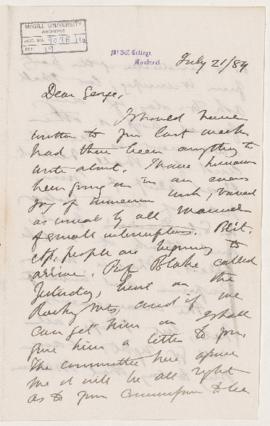 McGILL UNIVERSITY
ARCHIVES
ACC. NO.
REF. 19
McGill College,
Montreal.
July 21/84
Dear George,
I should have
written to you last week
had there been anything to
write about. I have however
been going on in an even
way of summer work, varied
as usual by all manner
of small interruptions. Brit.
people are beginning to
arrive. Prof Blake called
yesterday, bent on the
Rocky Mts, and if we
can get him on I shall
give him a letter to you.
The committee here assure
me it will be all right
as to your